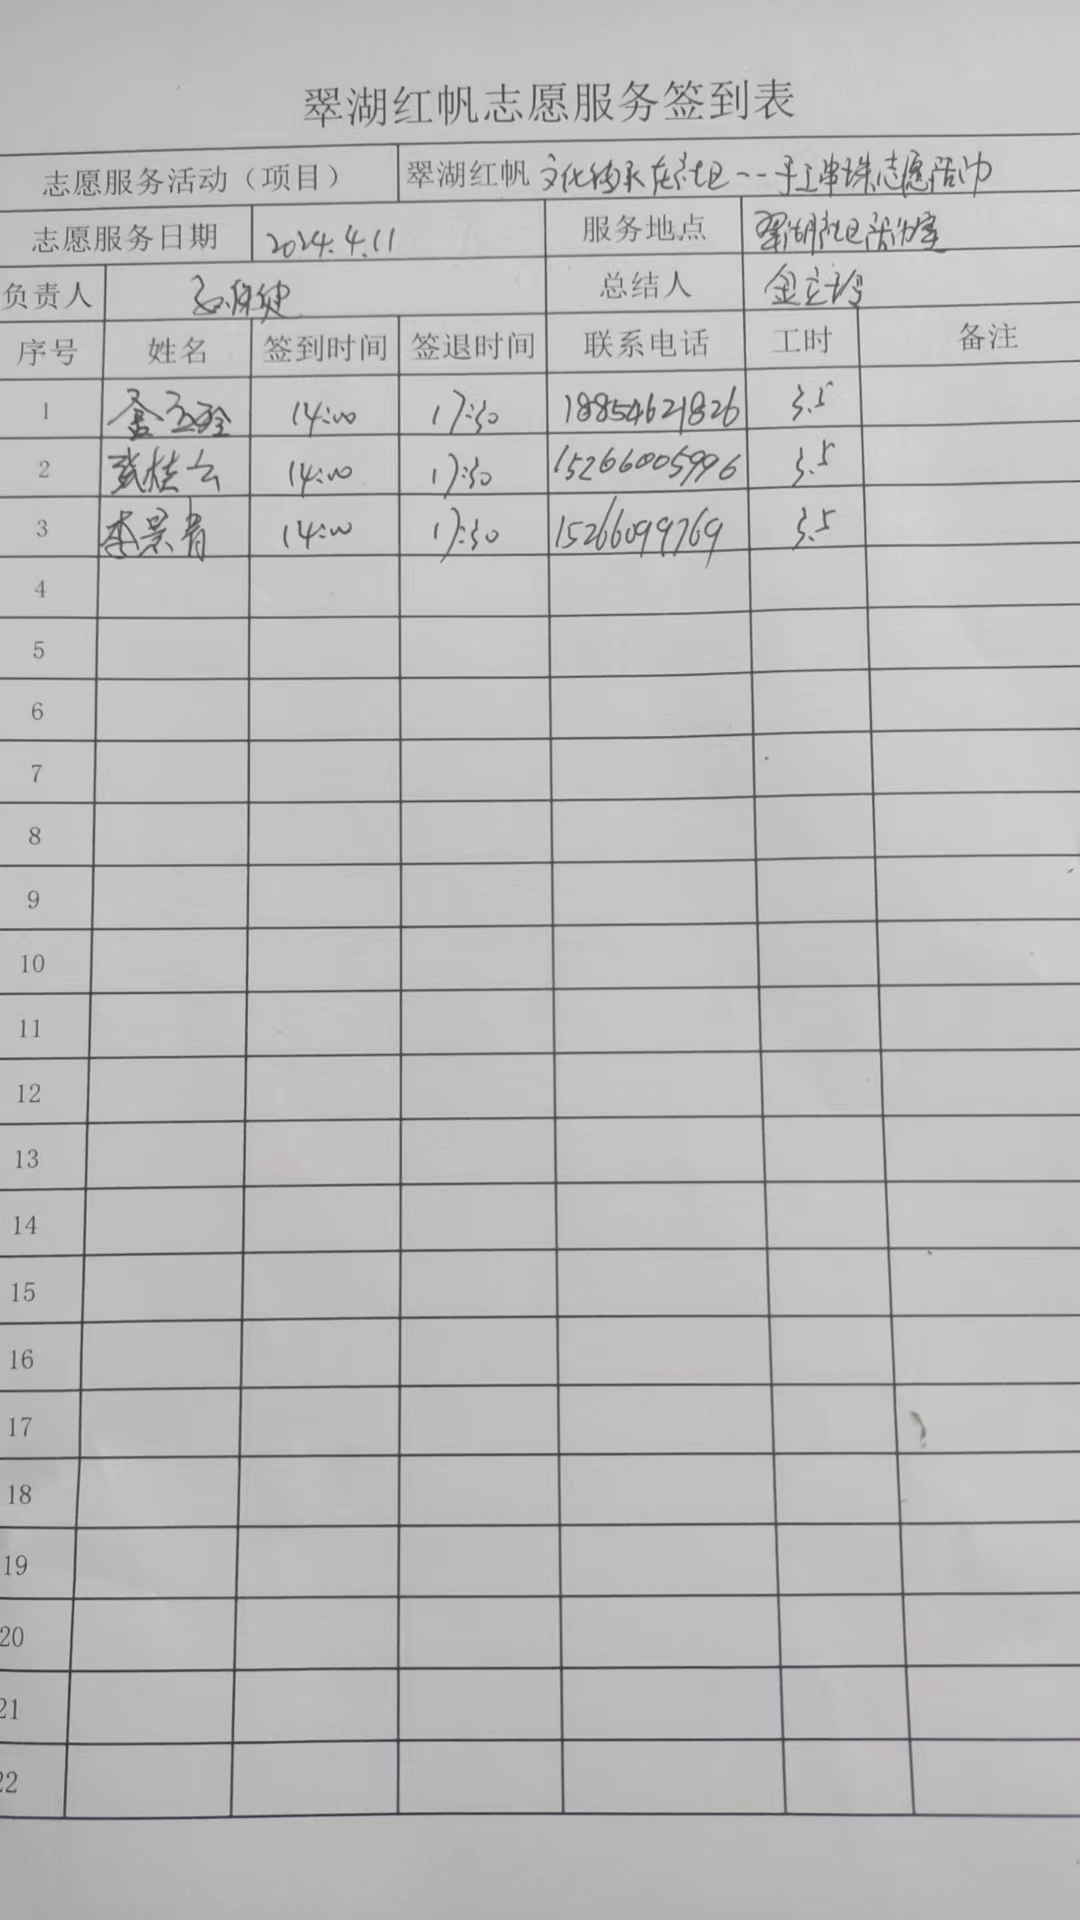 翠湖红帆志愿服务签到表
志愿服务活动（项目） 翠湖红帆 文化传承在社区--手工串珠志愿活动
志愿服务日期 2024.4.11 服务地点 翠湖社区活动室
负责人 总结人 金立玲
序号 姓名 签到时间 签退时间 联系电话 工时 备注
1 14:00 17:30 18854621826 3.5
2 张桂云 14:00 17:30 15266005996 3.5
3 李景青 14:00 17:30 15266099769 3.5
4
5
6
7
8
9
10
11
12
13
14
15
16
17
18
19
20
21
22